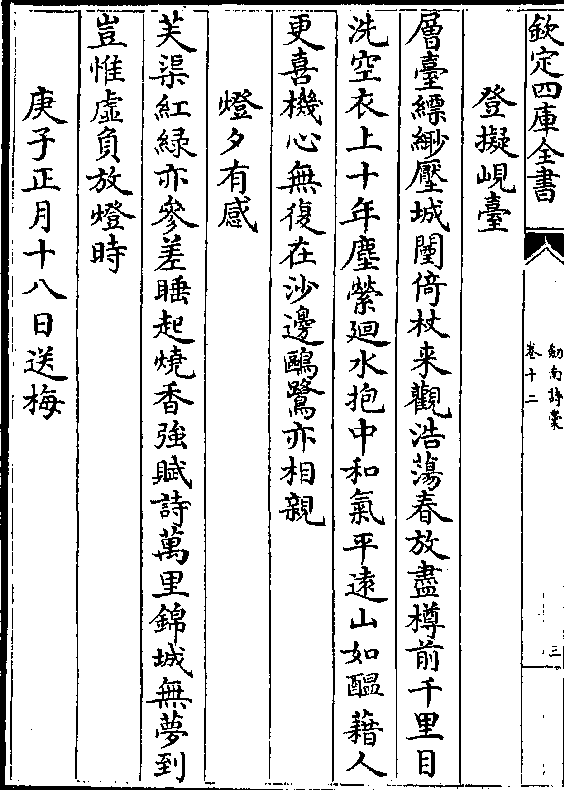 欽定四庫全書
劒南詩藁
卷十二
三
登擬峴臺
層臺縹緲壓城闉倚杖来觀浩蕩春放盡樽前千里目
洗空衣上十年塵縈廻水抱中和氣平遠山如醖藉人
更喜機心無復在沙邊鷗鷺亦相親
燈夕有感
芙渠紅緑亦參差睡起燒香強賦詩萬里錦城無夢到
豈惟虛負放燈時
庚子正月十八日送梅